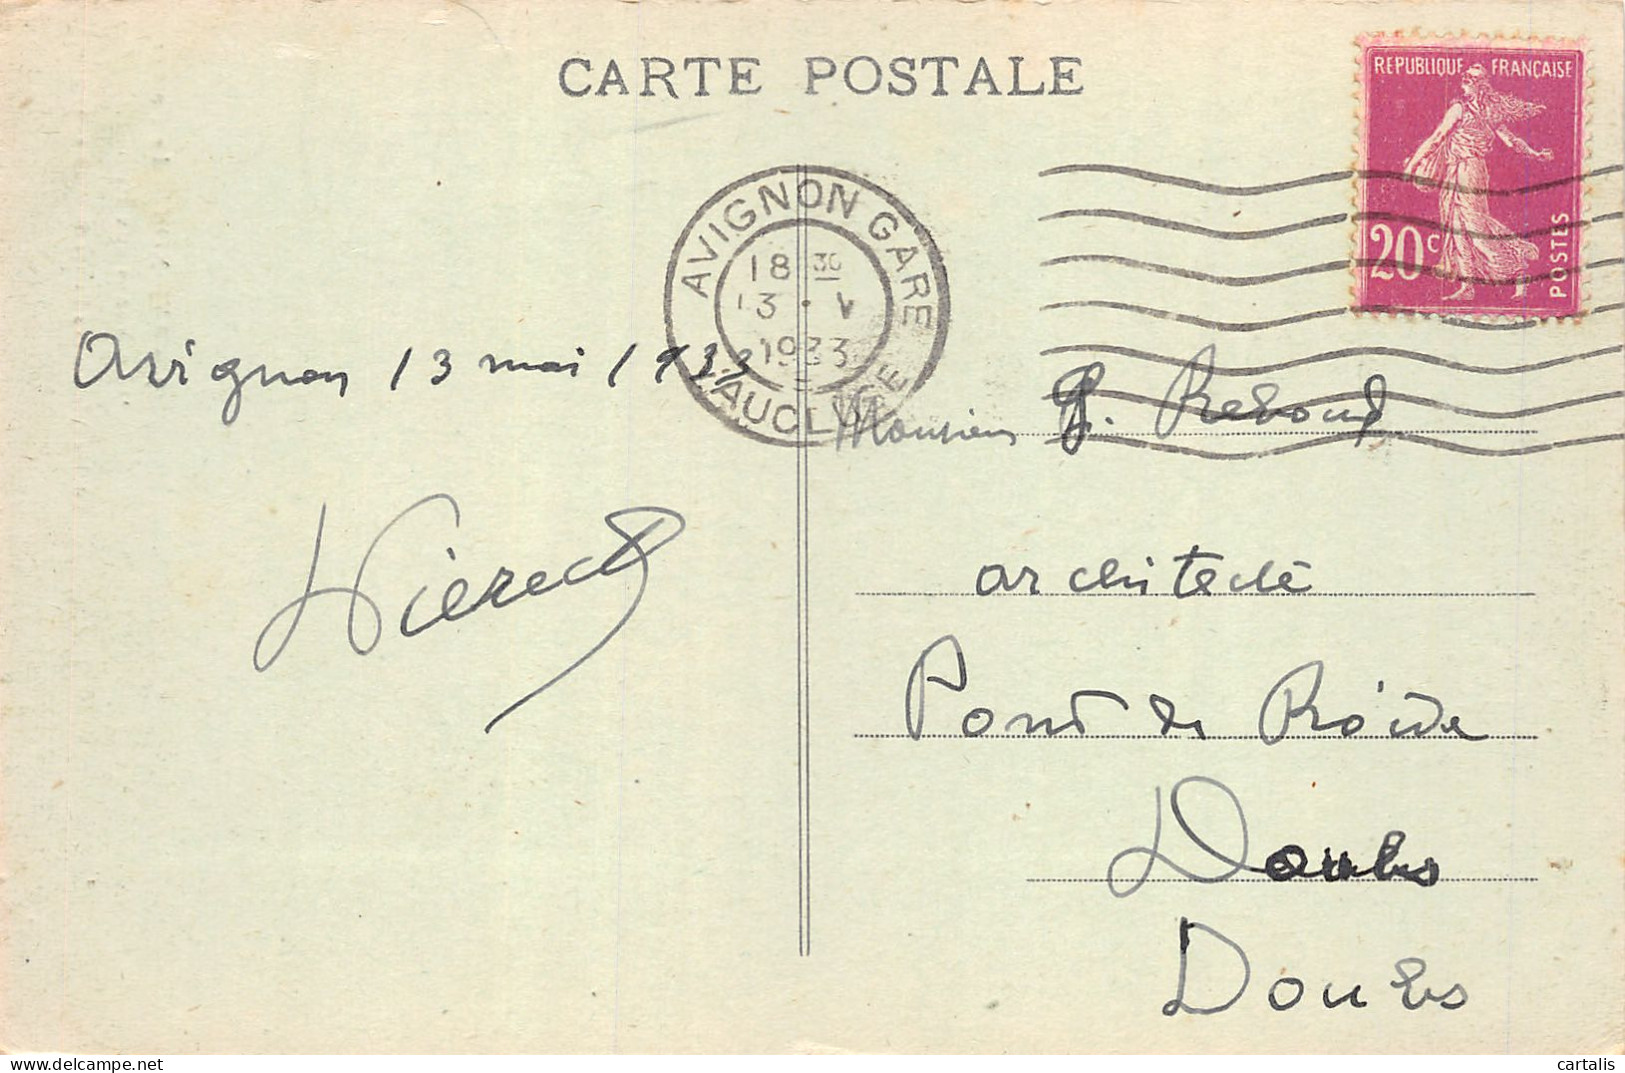 CARTE POSTALE
REPUBLIQUE FRANÇAISE
20c
POSTES
AVIGNON GARE
18 30
13 · V
1933
VAUCLUSE
Avignon 13 mai 1933
Monsieur G.
architecte
Pont de Roide
Doubs
Doubs
cartalis